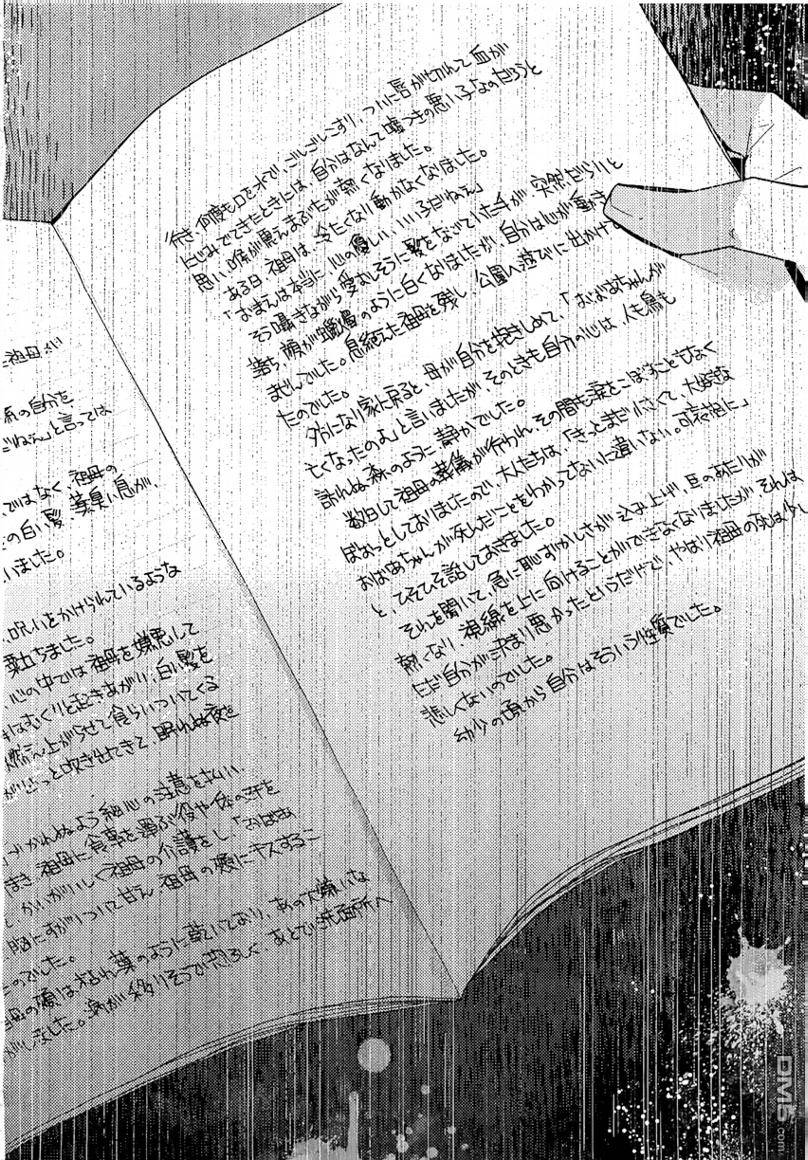 た祖母さい
系の自分を
だねぇ」と言っては
ではなく、祖母の
の白い髪、薬臭い息が、
いました。
、呪いをかけられているような
粟立ちました。
、心の中では祖母を嫌悪して
はむくりと起きあがり、白い髪を
燃え上がらせて食らいついてくる
さっと吹き出てきて、眠れぬ夜を
づかれぬよう細心の注意を払い、
まき、祖母に食事を運ぶ役や体の汗を
、かいがいしく祖母の介護をし、「おばあ
胸にすがりついて甘え、祖母の頬にキスするこ
のでした。
祖母の頬は枯れ葉のように乾いており、あの大嫌いな
がしました。病が移りそうで恐ろしく、あとで洗面所へ
行き、何度も口を水で、ごしごしこすり、ついに唇が切れて血が
にじみでてきたときには、自分はなんて嘘つきの悪い子なのだろうと
思い、喉が震えまぶたが熱くなりました。
ある日、祖母は、冷たくなり動かなくなりました。
「おまえは本当に、心の優しい、いい子だねえ」
そう囁きながら愛おしそうに髪をなでていた手が、突然だらりと
落ち、顔が蝋燭のように白くなりましたが、自分は心が動き
ませんでした。息絶えた祖母を残し、公園へ遊びに出かけ
たのでした。
夕方になり家に戻ると、母が自分を抱きしめて、「おばあちゃんが
亡くなったのよ」と言いましたが、そのときも自分の心は、人も鳥も
訪れぬ森のように静かでした。
数日して祖母の葬儀が行われ、その間も涙をこぼすこともなく
ぼおっとしておりましたので、大人たちは、「きっとまだ小さくて、大好きな
おばあちゃんが死んだことをわかってないに違いない。可哀想に」
と、ひそひそ話しておきました。
それを聞いて、急に恥ずかしさが込み上げ、耳のあたりが
熱くなり、視線を上に向けることができなくなりましたが、それは
ただ自分が決まり悪かったというだけで、やはり祖母の死は少し
悲しくないのでした。
幼少の頃から自分はそういう性質でした。
DM5.com